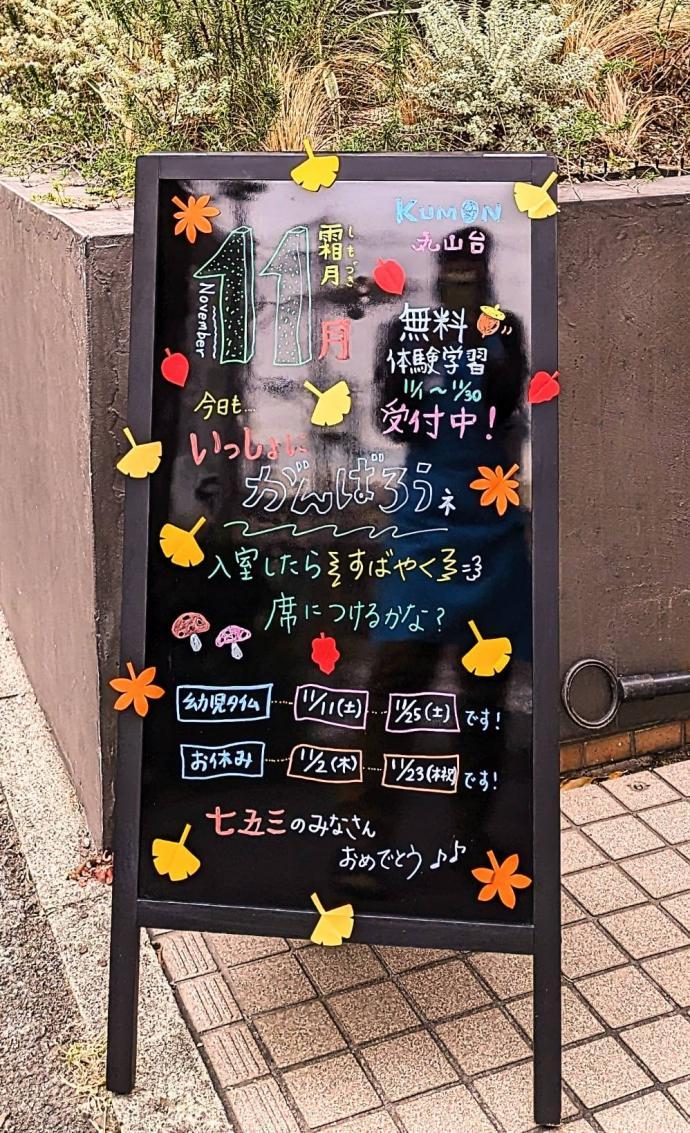 KUMON
丸山台
11月
霜月
しもつき
November
無料
体験学習
11/1～11/30
受付中！
今日も…
いっしょに
がんばろうネ
入室したらすばやく
席につけるかな？
幼児タイム…11/11(土)…11/25(土)です！
お休み…11/2(木)…11/23(木祝)です！
七五三のみなさん
おめでとう♪♪